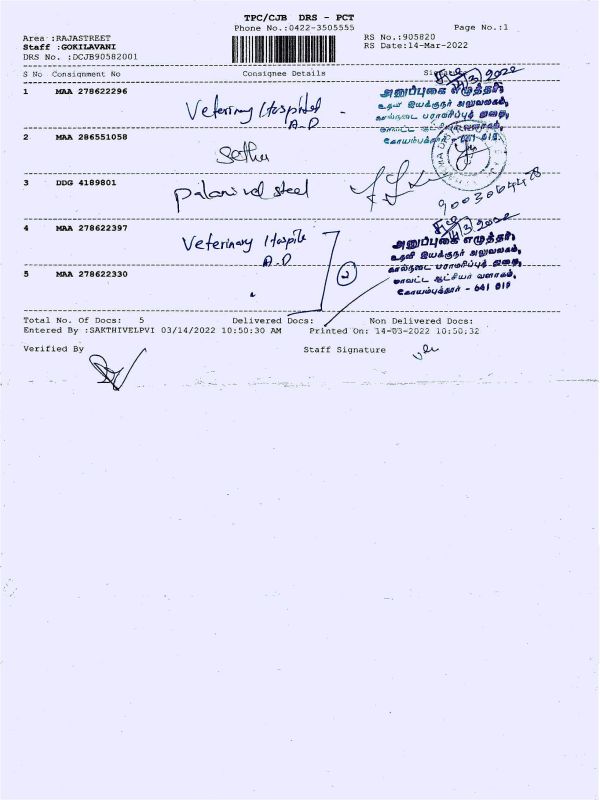 TPC/CJB DRS - PCT
Phone No.:0422-3505555
Page No.:1
Area :RAJASTREET
RS No.:905820
Staff :GOKILAVANI
RS Date:14-Mar-2022
DRS No. :DCJB90582001
S No Consignment No Consignee Details
1 MAA 278622296
Veterinary Hospital
A.D
14/3/2022
அனுப்புகை எழுத்தர்,
உதவி இயக்குநர் அலுவலகம்,
கால்நடை பராமரிப்புத் துறை,
2 MAA 286551058
Sethu
3 DDG 4189801
Palanivel steel
4 MAA 278622397
Veterinary
A.D
2
அனுப்புகை எழுத்தர்,
உதவி இயக்குநர் அலுவலகம்,
கால்நடை பராமரிப்புத் துறை,
மாவட்ட ஆட்சியர் வளாகம்,
கோயம்புத்தூர் - 641 018
5 MAA 278622330
Total No. Of Docs: 5 Delivered Docs: Non Delivered Docs:
Entered By :SAKTHIVELPVI 03/14/2022 10:50:30 AM Printed On: 14-03-2022 10:50:32
Verified By Staff Signature